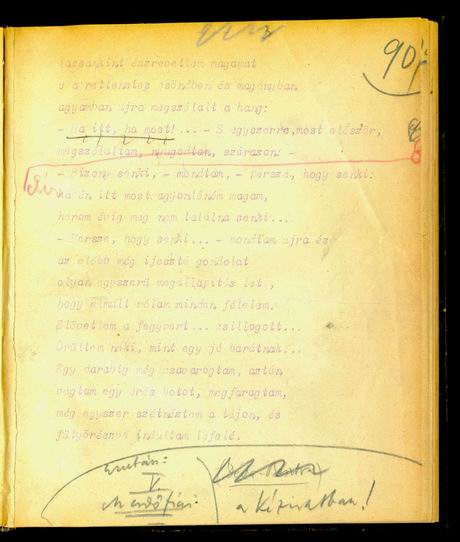 90
lassankint észrevettem magamat
s a rettenetes csöndben és magányban
agyamban ujra megszólalt a hang:
- Ha itt, ha most! ... - S egyszerre, most először,
megszólaltam, nyugodtan, szárazon: -
- Bizony senki, - mondtam, - persze, hogy senki:
ha én itt most agyonlőném magam,
három évig meg nem találna senki...
- Persze, hogy senki... - mondtam ujra és
az előbb még ijesztő gondolat
olyan egyszerü megállapitás lett,
hogy elmult rólam minden félelem.
Elővettem a fegyvert... csillogott...
Örültem neki, mint egy jó barátnak...
Egy darabig még csavarogtam, aztán
vágtam egy erős botot, megfaragtam,
még egyszer szétnéztem a tájon, és
fütyörészve indultam lefelé.
Ezután:
V.
Az erdő fiai
a Kéziratban!